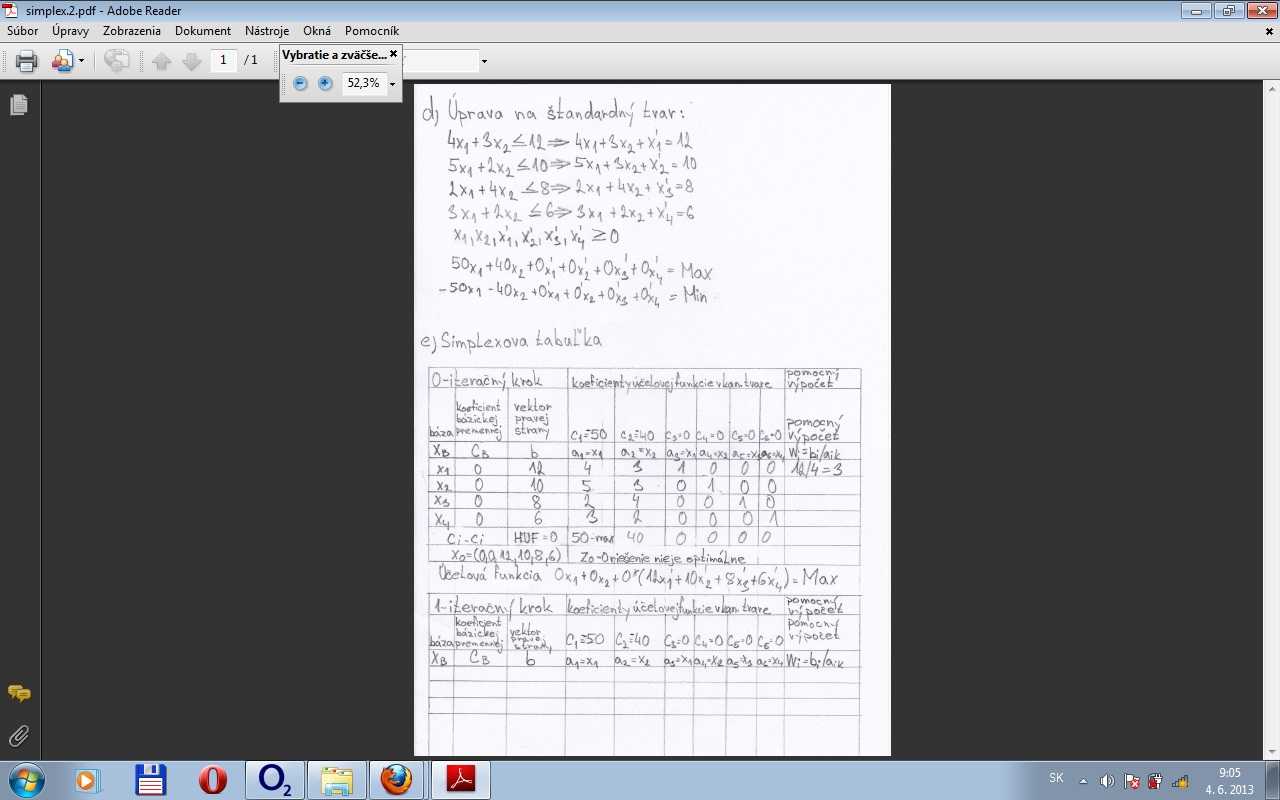 simplex.2.pdf - Adobe Reader
Súbor Úpravy Zobrazenia Dokument Nástroje Okná Pomocník
1 / 1
Vybratie a zväčše...
52,3%
d) Úprava na štandardný tvar:
4x₁+3x₂≤12⇒ 4x₁+3x₂+x₁'=12
5x₁+2x₂≤10⇒5x₁+3x₂+x₂'=10
2x₁+4x₂≤8⇒2x₁+4x₂+x₃'=8
3x₁+2x₂≤6⇒3x₁+2x₂+x₄'=6
x₁,x₂,x₁',x₂',x₃',x₄' ≥0
50x₁+40x₂+0x₁'+0x₂'+0x₃'+0x₄'= Max
-50x₁-40x₂+0x₁'+0x₂'+0x₃'+0x₄'= Min
e) Simplexova tabuľka
0-iteračný krok koeficienty účelovej funkcie v kan. tvare pomocný výpočet
báza koeficient bázickej premennej vektor pravej strany C₁=50 C₂=40 C₃=0 C₄=0 C₅=0 C₆=0 pomocný výpočet
XB CB b a₁=x₁ a₂=x₂ a₃=x₁ a₄=x₂ a₅=x₃ a₆=x₄ Wi=bi/aik
x₁ 0 12 4 3 1 0 0 0 12/4=3
x₂ 0 10 5 3 0 1 0 0
x₃ 0 8 2 4 0 0 1 0
x₄ 0 6 3 2 0 0 0 1
Ci-Ci HUF=0 50-max 40 0 0 0 0
x₀=(0,0,12,10,8,6) Z₀-0 riešenie nieje optimálne
Účelová funkcia 0x₁+0x₂+0*(12x₁'+10x₂'+8x₃'+6x₄')=Max
1-iteračný krok koeficienty účelovej funkcie v kan. tvare pomocný výpočet
báza koeficient bázickej premennej vektor pravej strany C₁=50 C₂=40 C₃=0 C₄=0 C₅=0 C₆=0 pomocný výpočet
XB CB b a₁=x₁ a₂=x₂ a₃=x₁ a₄=x₂ a₅=x₃ a₆=x₄ Wi=bi/aik
O₂
SK
9:05
4. 6. 2013